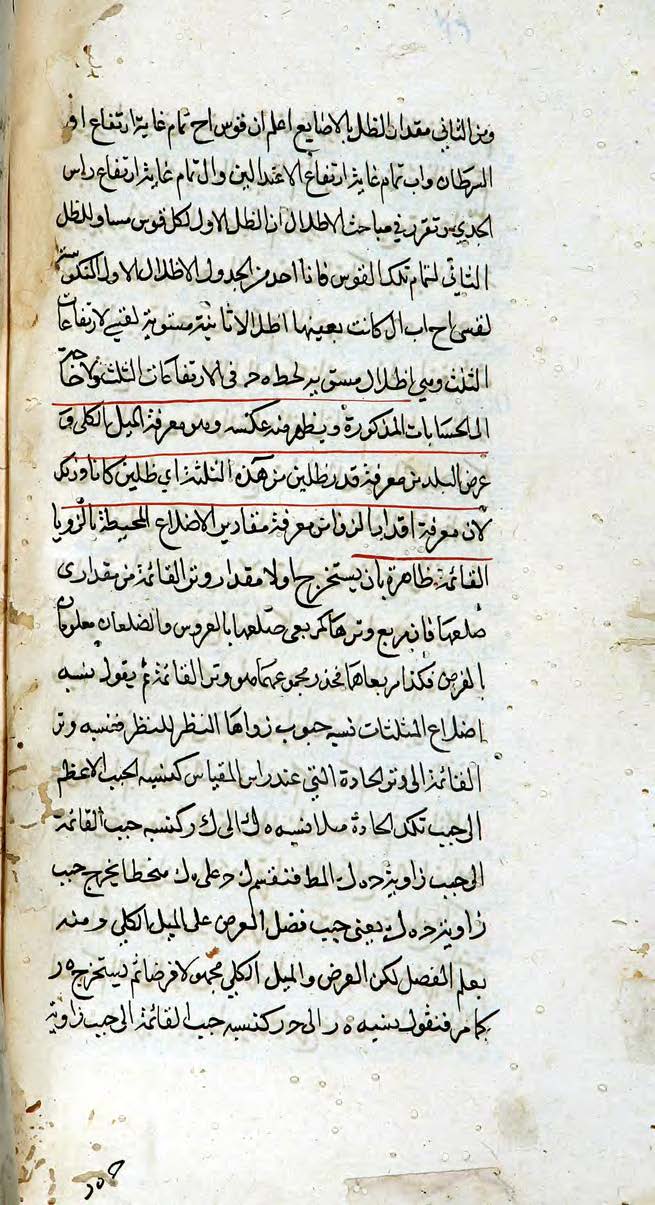 ومن الثاني مقدار الظل بالاصابع اعلم ان قوس اح تمام غاية ارتفاع اول
السرطان واب تمام غاية ارتفاع الاعتدالين وال تمام غاية ارتفاع راس
الجدي وتقرر في مباحث الاظلال ان الظل الاول لكل قوس مساو للظل
الثاني لتمام تلك القوس فاذا احد من الجدول الاظلال الاول المنكوسة
لقسي اح اب ال كانت بعينها اظلالا ثانية مستوية لقسي الارتفاعات
الثلث وهي اظلال مستوية لخط ه ح في الارتفاعات الثلث ولا حاجة
الى الحسابات المذكورة ويظهر منه عكسه وهو معرفة الميل الكلي و
عرض البلد من معرفة قدر ظلين من هذه الثلثة اي ظلين كانا وذلك
لان معرفة اقدار الزوايا من معرفة مقادير الاضلاع المحيطة بالزوايا
القائمة ظاهرة بان يستخرج اولا مقدار وتر القائمة من مقداري
ضلعها فان مربع وترها كمربعي ضلعيها بالعروس والضلعان معلومان
بالفرض فكذا مربعاهما فجذر مجموعهما هو وتر القائمة ثم يقول نسبة
اضلاع المثلثات نسبة جيوب زواياها النظر للنظر فنسبة وتر
القائمة الى وتر الحادة التي عند راس المقياس كنسبة الجيب الاعظم
الى جيب تلك الحادة مثلا نسبة ه ك الى ك ر كنسبة جيب القائمة
الى جيب زاوية ح ه ك المط فنقسم ك ح على ه ك منحطا يخرج جيب
زاوية ح ه ك يعني جيب فضل العرض على الميل الكلي ومنه
يعلم الفضل لكن العرض والميل الكلي مجهولا فرضا ثم يستخرج ه ر
كما مر فنقول نسبة ه ر الى ح ر كنسبة جيب القائمة الى جيب زاوية